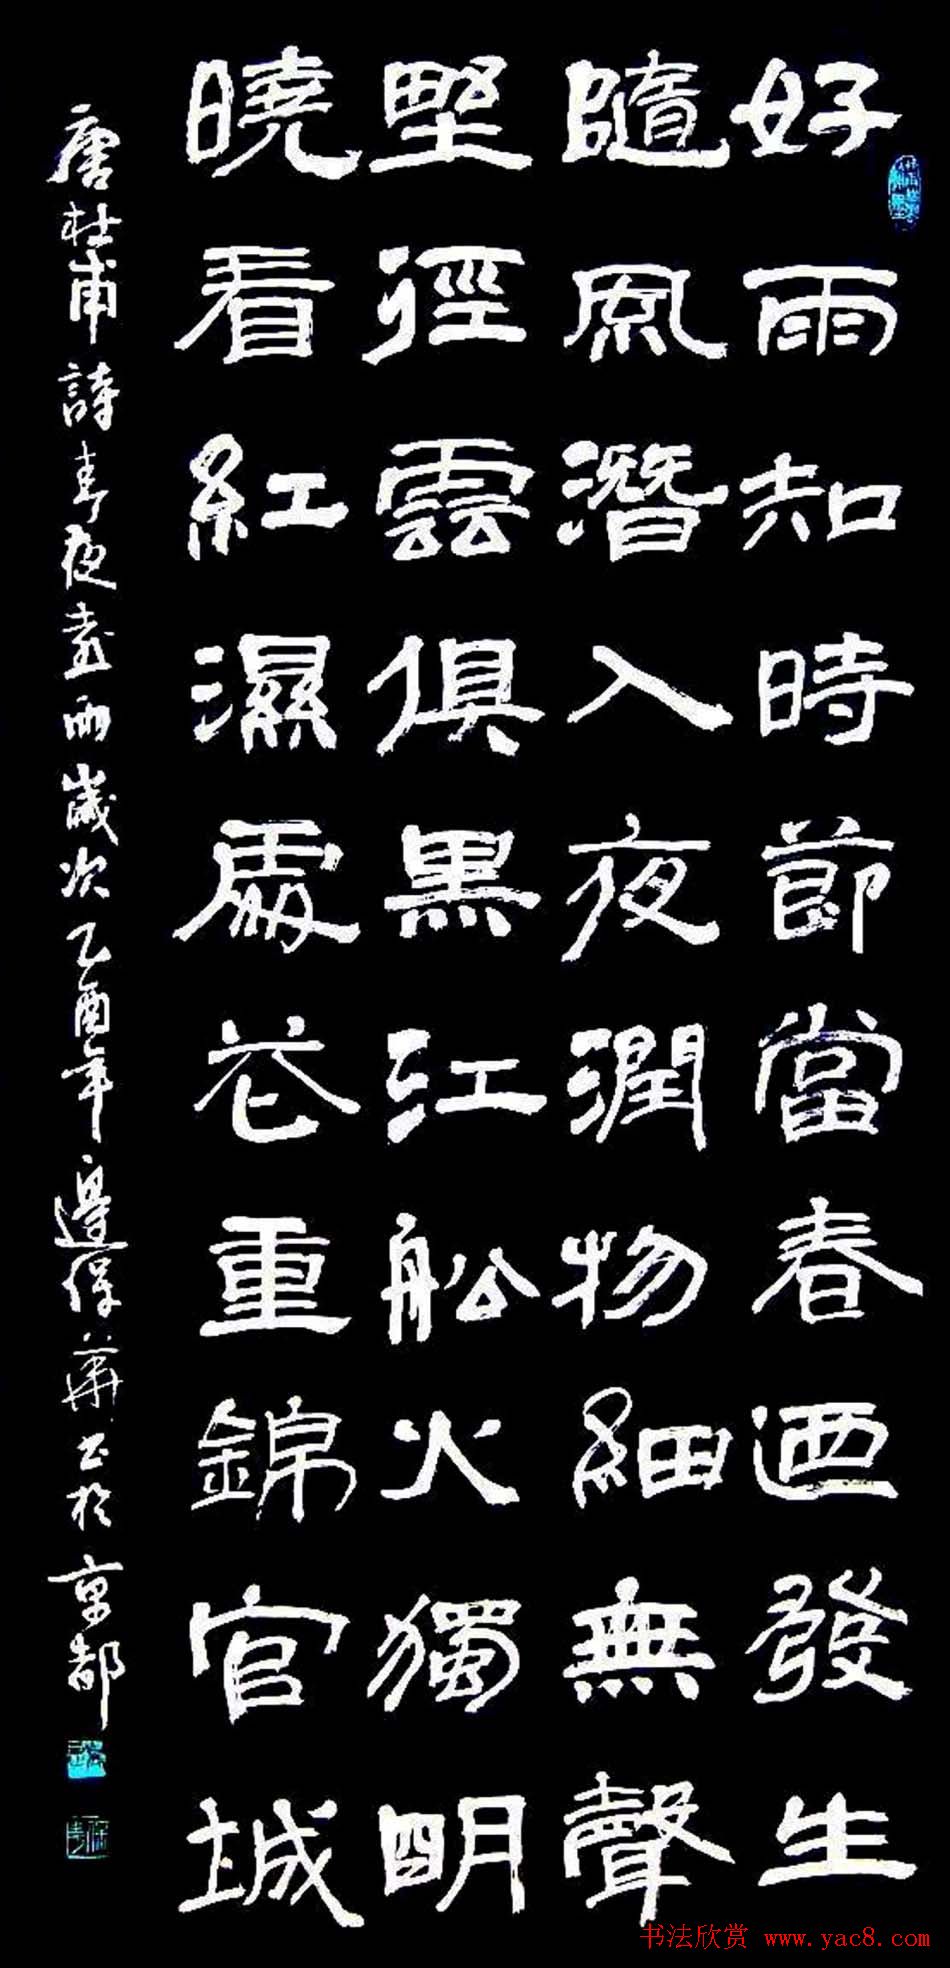 好雨知時節當春迺發生
隨風潛入夜潤物細無聲
野徑雲俱黑江船火獨明
曉看紅濕處花重錦官城
唐杜甫詩春夜喜雨歲次乙酉年邊保華書於京都
书法欣赏 www.yac8.com